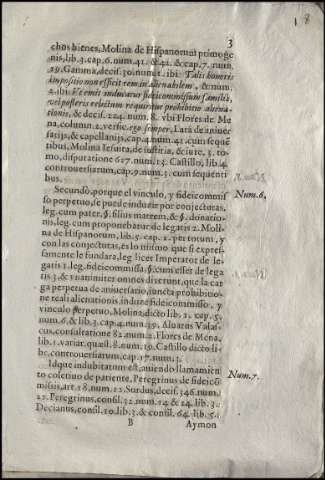 3
1 8
chos bienes, Molina de Hispanorum primoge
nis, lib. 3. cap. 6. num. 41. & 42. & cap. 7. num.
29. Gamma, decis. 30. num. 2. ibi: Talis honoris
impositio non efficit rem inalienabilem, & num.
2. ibi: Et emit inducatur fideicommissum familiæ,
vel posteris relictum requiratur prohibitio aliena-
tionis, & decis. 224. num. 8. vbi Flores de Me
na, column. 2. versic. ego semper, Lara de aniuer
sarijs, & capellanijs, cap. 4. num. 41. cum sequē
tibus, Molina Iesuita, de iustitia, & iure, 2. to-
mo, disputatione 627. num. 13. Castillo, lib. 4.
controuersiarum, cap. 9. num. 3. cum sequenti
bus.
Secundò, porque el vinculo, y fideicommiss
so perpetuo, se puede induzir por conjecturas,
leg. cum pater, §. filius matrem, & §. donatio-
nis, leg. cum proponebatur de legatis 2. Moli-
na de Hispanorum, lib. 5. cap. 2. per totum, y
con las conjecturas, es lo mismo que si expres-
samente le fundara, leg. licet Imperator de le-
gatis 1. leg. fideicommissa, §. cum esset de lega
tis 3. & vnanimiter omnes dixerunt, que la car
ga perpetua de aniuersario, iuncta prohibitio-
ne reali alienationis, induze fideicommisso, y
vinculo perpetuo, Molina, dicto lib. 2. cap. 5.
num. 6. & lib. 3. cap. 4. num. 39. Aluarus Valas-
cus, consultatione 82. num. 2. Flores de Mena,
lib. 1. variar. quæst. 8. num. 19. Castillo dicto li-
bro controuersiarum, cap. 17. num. 3.
Idque indubitatum est, auiendo llamamien
to coletiuo de pariente, Peregrinus de fideicō
missis, art. 18. num. 12. Surdus, decis. 346. num.
22. Peregrinus, consil. 32. num. 14. & 24. lib. 3.
Decianus, consil. 10. lib. 3. & consil. 64. lib. 5.
B Aymon
Num. 6.
Num. 7.